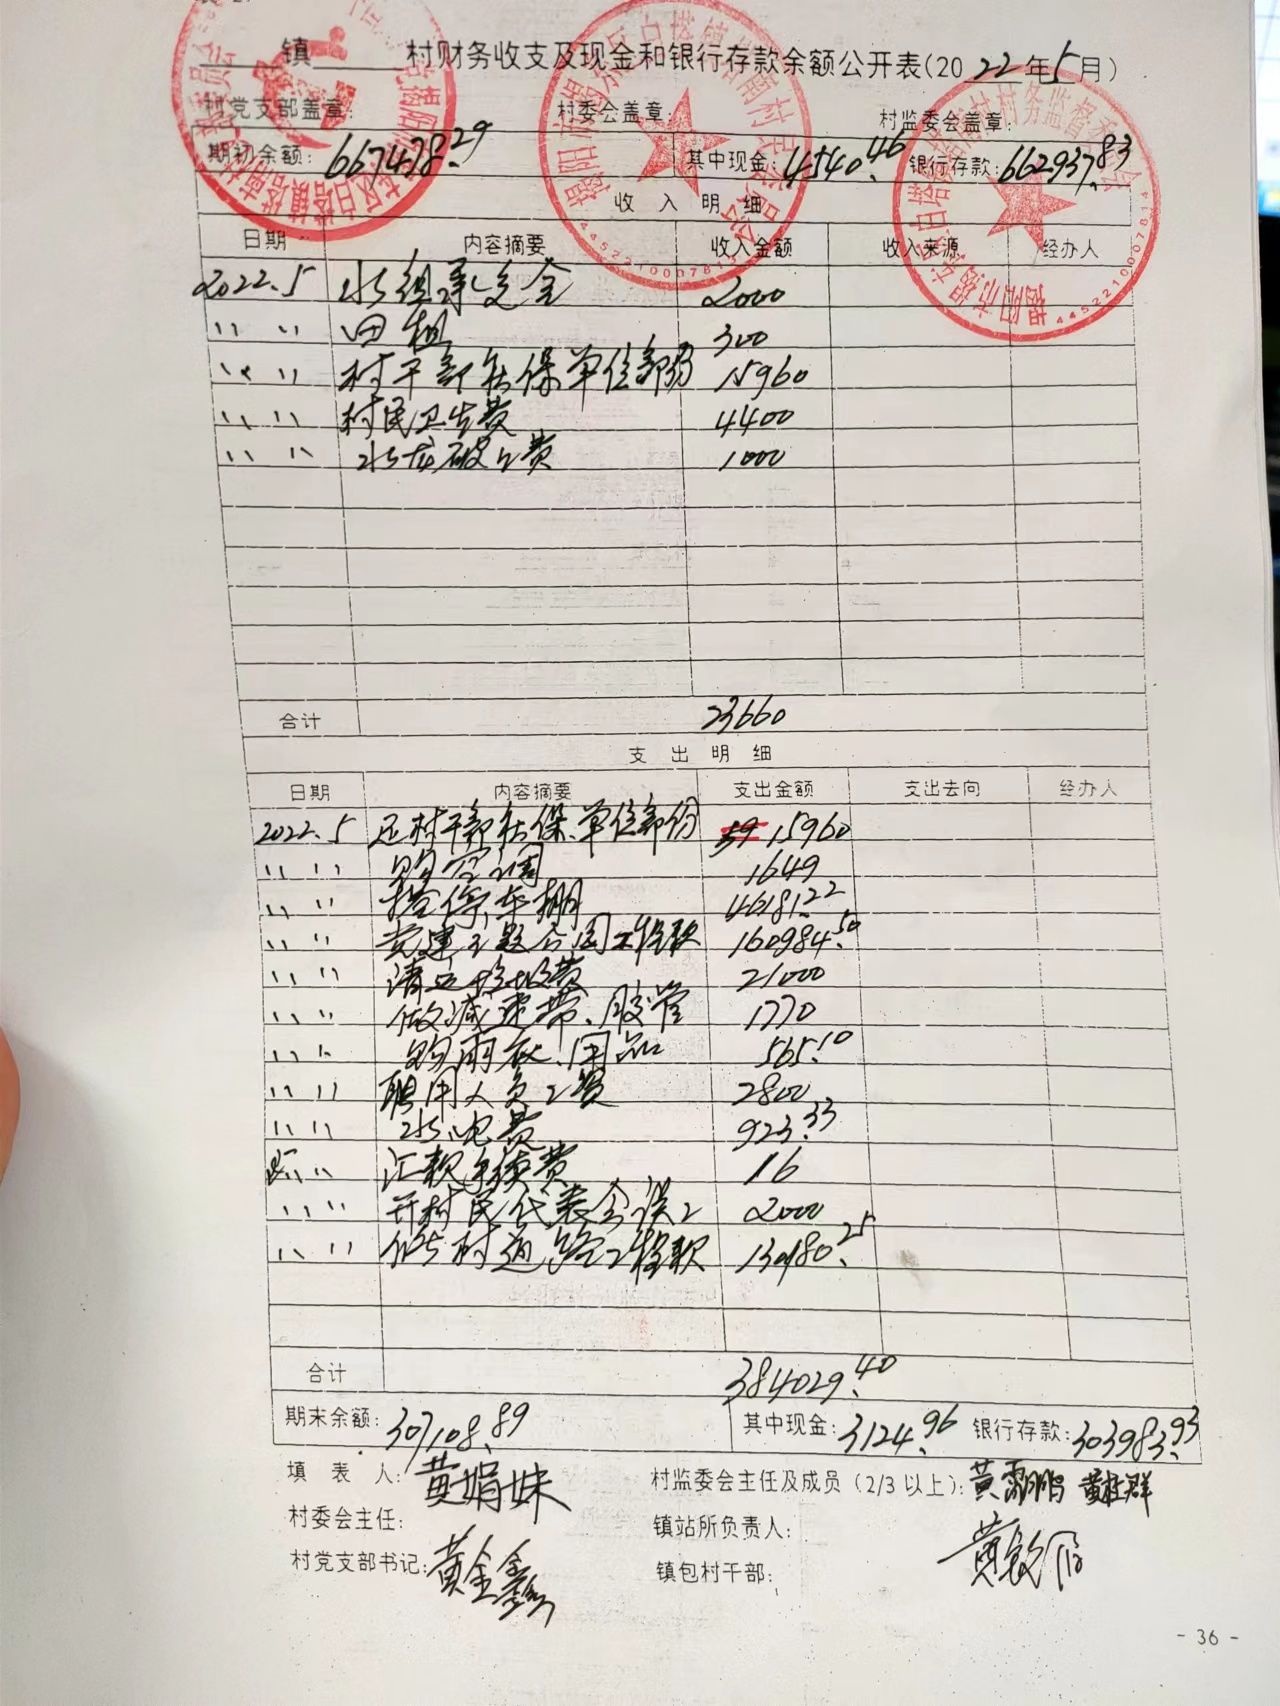 镇 村财务收支及现金和银行存款余额公开表(2022年5月)
村党支部盖章: 村委会盖章: 村监委会盖章:
期初余额: 667478.29 其中现金: 4540.46 银行存款: 662937.83
收 入 明 细
日期 内容摘要 收入金额 收入来源 经办人
2022.5 2000
〃 〃 田租 300
〃 〃 村干部社保单位部份 15960
〃 〃 村民卫生费 4400
〃 〃 1000
合计 23660
支 出 明 细
日期 内容摘要 支出金额 支出去向 经办人
2022.5 还村干部社保单位部份 15960
〃 〃 购空调 1649
〃 〃 搭停车棚 46181.22
〃 〃 党建主题公园工程款 160984.50
〃 〃 清运垃圾费 21000
〃 〃 做减速带、胶管 1770
〃 〃 购雨衣、用品 565.10
〃 〃 聘用人员工资 2800
〃 〃 水电费 923.33
〃 〃 汇款手续费 16
〃 〃 开村民代表会误工 2000
〃 〃 村道路工程款 130180.25
合计 384029.40
期末余额: 307108.89 其中现金: 3124.96 银行存款: 303983.93
填 表 人: 黄娟妹 村监委会主任及成员(2/3以上): 黄
村委会主任: 镇站所负责人:
村党支部书记: 黄金鑫 镇包村干部:
- 36 -